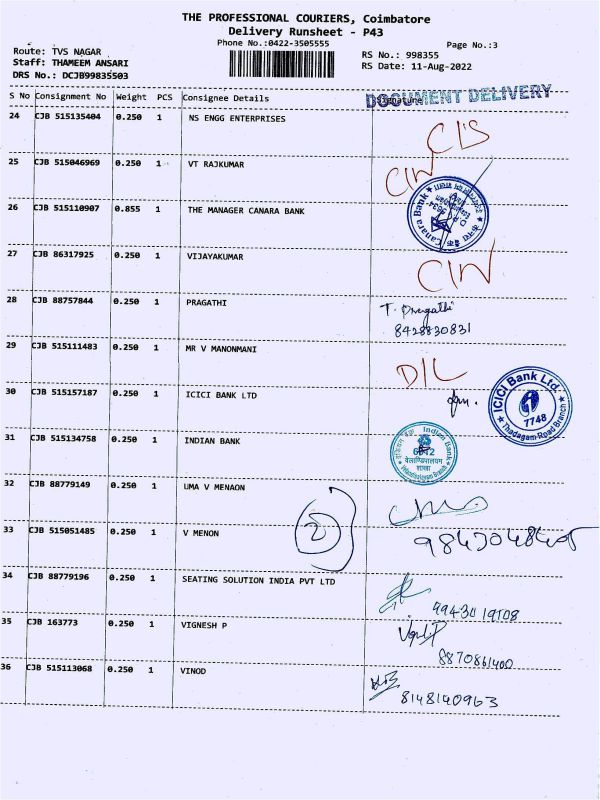 THE PROFESSIONAL COURIERS, Coimbatore
Delivery Runsheet - P43
Phone No.:0422-3505555
Page No.:3
Route: TVS NAGAR
Staff: THAMEEM ANSARI
DRS No.: DCJB99835503
RS No.: 998355
RS Date: 11-Aug-2022
S No Consignment No Weight PCS Consignee Details Signature
DOCUMENT DELIVERY
24 CJB 515135404 0.250 1 NS ENGG ENTERPRISES
C/S
25 CJB 515046969 0.250 1 VT RAJKUMAR
C/N
26 CJB 515110907 0.855 1 THE MANAGER CANARA BANK
Canara Bank
27 CJB 86317925 0.250 1 VIJAYAKUMAR
C/N
28 CJB 88757844 0.250 1 PRAGATHI
T. Pragathi
8428830831
29 CJB 515111483 0.250 1 MR V MANONMANI
D/L
30 CJB 515157187 0.250 1 ICICI BANK LTD
ICICI Bank Ltd.
7748
Thadagam Road Branch
31 CJB 515134758 0.250 1 INDIAN BANK
Indian Bank
32 CJB 88779149 0.250 1 UMA V MENAON
2
33 CJB 515051485 0.250 1 V MENON
34 CJB 88779196 0.250 1 SEATING SOLUTION INDIA PVT LTD
35 CJB 163773 0.250 1 VIGNESH P
8870861400
36 CJB 515113068 0.250 1 VINOD
8148140963